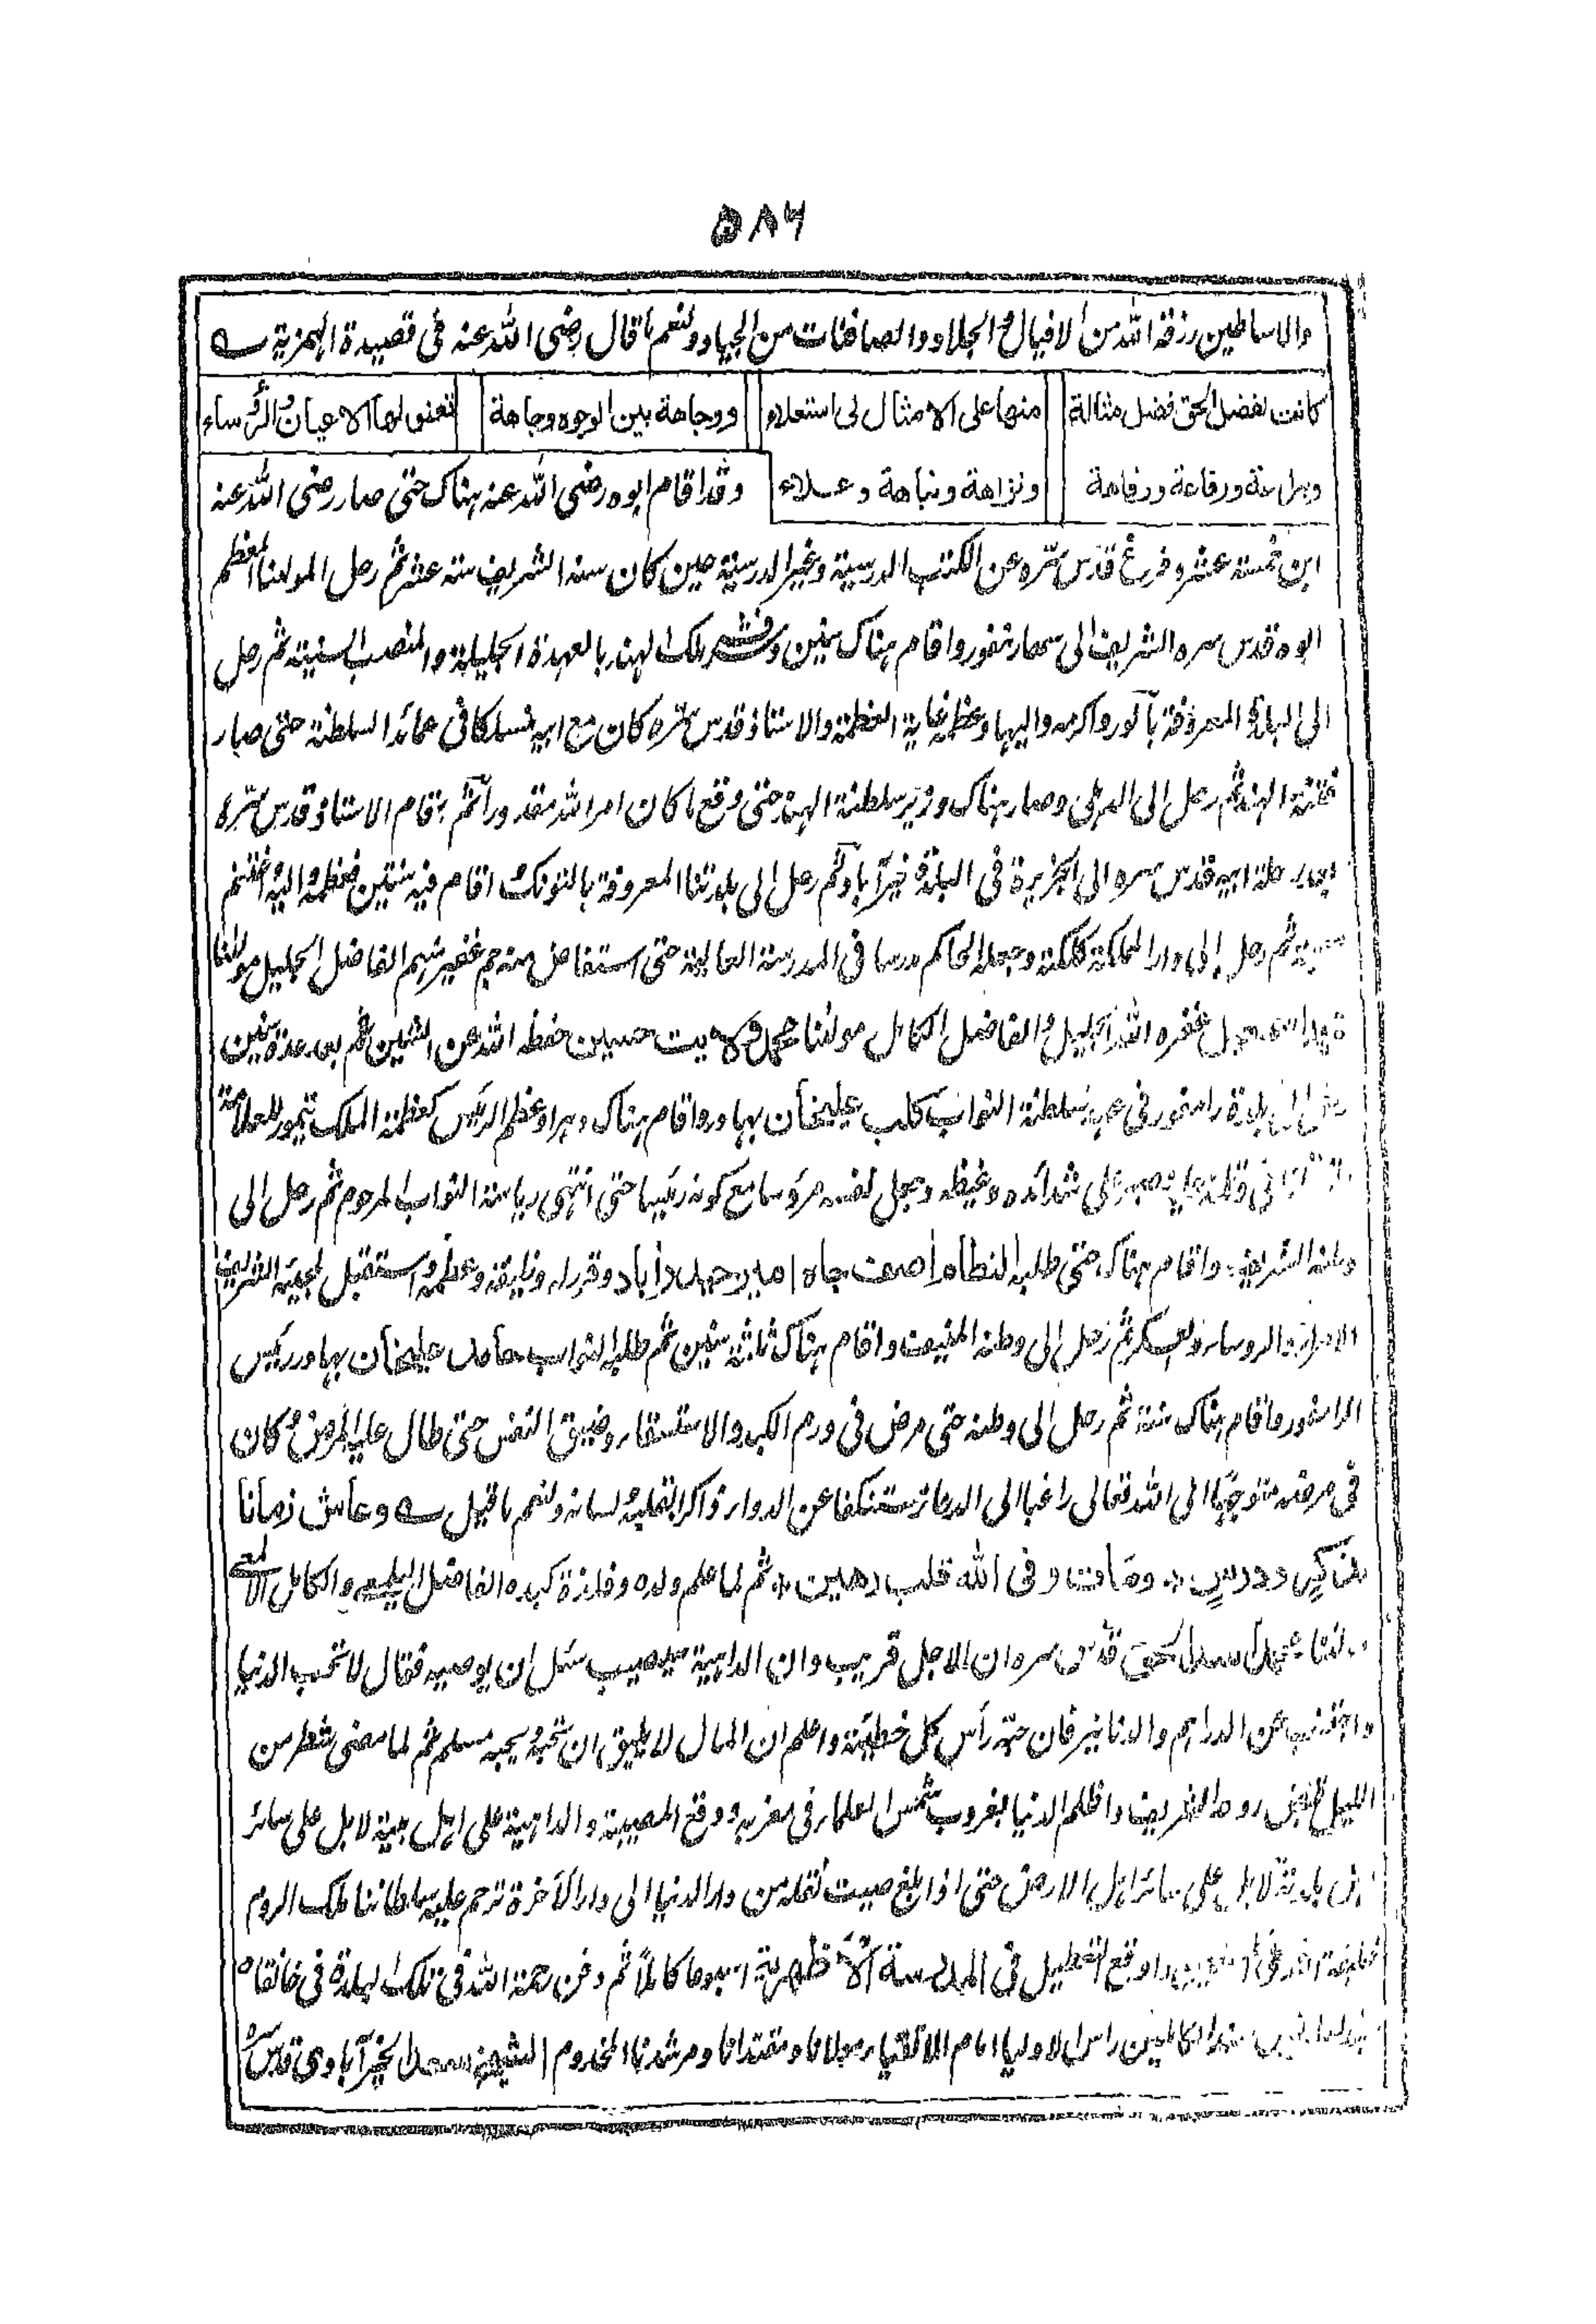 ۵۸۶
والاساطين رزقه الله من الافيال والجلاد والصافنات من الجياد ولنعم ما قال رضى الله عنه فى قصيدة الهمزية
كانت لفضل الحق فضل مثالة منها على الامثال لى استعلاء ووجاهة بين الوجوه وجاهة تعنو لها الاعيان والرؤساء
وبراعة ورفاعة ورفاهة ونزاهة ونباهة وعلاء وقد اقام ابوه رضى الله عنه هناك حتى صار رضى الله عنه
ابن خمسة عشر وفرغ قدس سره عن الكتب الدرسية وغير الدرسية حين كان سنه الشريف ستة عشر ثم رحل المولنا المعظم
ابوه قدس سره الشريف الى سهارنفور واقام هناك سنين ملك الهند بالعهدة الجليلة والمنصب السنية ثم رحل
الى البلدة المعروفة بآلور واكرمه واليها وعظمه غاية العظمة والاستاذ قدس سره كان مع ابيه منسلكا فى عمائد السلطنة حتى صار
فتنة الهند ثم رحل الى الدهلى وصار هناك وزير سلطنة الهند حتى وقع ما كان امر الله مقدورا ثم اقام الاستاذ قدس سره
بعد رحلة ابيه قدس سره الى الجزيرة فى البلدة خيرآباد ثم رحل الى بلدتنا المعروفة بالتونك اقام فيه سنتين فعظمه واليه
ثم رحل الى دار المملكة كلكته وجعله الحاكم مدرسا فى المدرسة العالية حتى استفاض منه جم غفير منهم الفاضل الجليل مولنا
غفره الله الجليل والفاضل الكامل مولنا محمد ولايت حسين حفظه الله عن الشين ثم بعد عدة سنين
بلدة رامفور فى عهد سلطنة النواب كلب عليخان بهادر واقام هناك دهرا وعظم الرئيس كعظمة الملك تيمور للعلامة
على شدائده وغيظه وجعل نفسه مرؤسا مع كونه رئيسا حتى انتهى رياسة النواب المرحوم ثم رحل الى
وطنه الشريف واقام هناك حتى طلبه النظام اصف جاه امير حيدرآباد وقرر له وظيفة وعظمه واستقبل لمجيئه الشريف
الامراء والرؤساء والعسكر ثم رحل الى وطنه المنيف واقام هناك ثلثة سنين ثم طلبه النواب حامد عليخان بهادر رئيس
الرامفور فاقام هناك سنة ثم رحل الى وطنه حتى مرض فى ورم الكبد والاستسقاء وضيق النفس حتى طال عليه المرض وكان
فى مرضه متوجها الى الله تعالى راغبا الى الدعاء مستنكفا عن الدواء ذاكرا بقلبه ولسانه ولنعم ما قيل وعاش زمانا
بذكر ودرس ومات وفى الله قلب رهين ثم لما علم ولده وفلذة كبده الفاضل والكامل
قدس سره ان الاجل قريب وان الداهية سيصيب سئل ان يوصيه فقال لا تحب الدنيا
واجتنب عن الدراهم والدنانير فان حبه رأس كل خطيئة واعلم ان المال لا يليق ان تحبه ويحبه مسلم ثم لما مضى شطر من
الليل قبض روحه الشريف واظلم الدنيا بغروب شمس العلماء فى مغربه ووقع المصيبة والداهية على اهل بيته لا بل على سائر
اهل بلدته لا بل على سائر اهل الارض حتى اذا بلغ صيت نقله من دار الدنيا الى دار الآخرة ترحم عليه سلطاننا ملك الروم
ووقع التعطيل فى المدرسة اسبوعا كاملا ثم دفن رحمة الله فى تلك البلدة فى خانقاه
الكاملين راس الاولياء امام الاتقياء مولانا ومقتدانا ومرشدنا المخدوم الشيخ سعد الخيرآبادى قدس سره